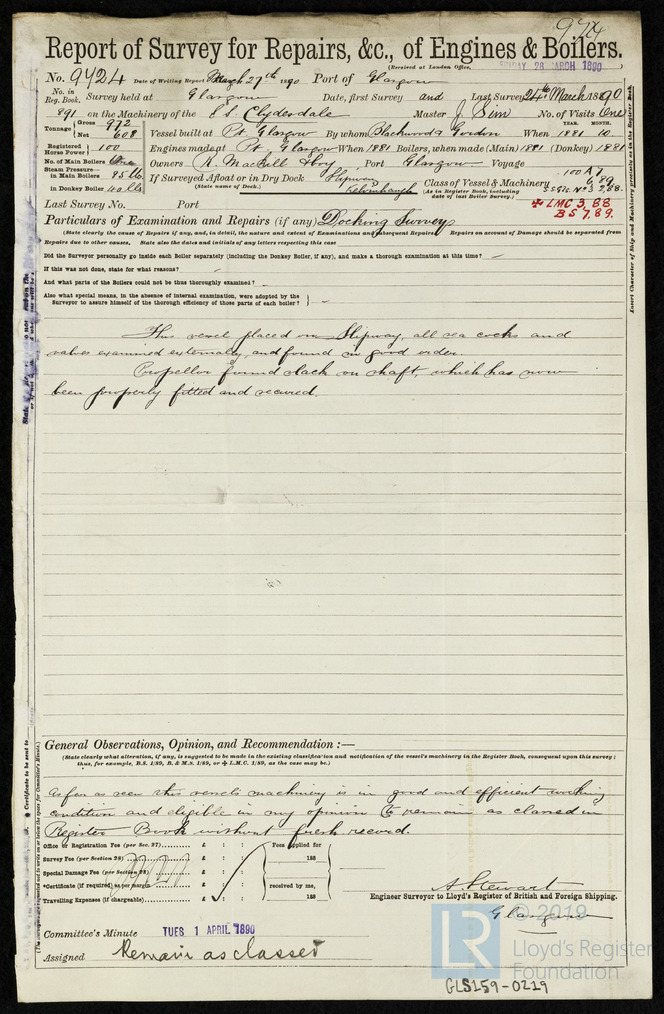 974
Report of Survey for Repairs, &c., of Engines & Boilers.
(Received at London Office, FRIDAY 28 MARCH 1890
No. 9424 Date of Writing Report March 27th 1890 Port of Glasgow
No. in Reg. Book. Survey held at Glasgow Date, first Survey and Last Survey 24th March 1890
891 on the Machinery of the S.S. Clydesdale Master J. Sim No. of Visits One
Tonnage Gross 972 Net 608 Vessel built at Pt. Glasgow By whom Blackwood & Gordon When YEAR. 1881 MONTH. 10
Registered Horse Power 100 Engines made at Pt. Glasgow When 1881 Boilers, when made (Main) 1881 (Donkey) 1881
No. of Main Boilers One Owners R. MacGill Port Glasgow Voyage
Steam Pressure in Main Boilers 85 lb If Surveyed Afloat or in Dry Dock Slipway Class of Vessel & Machinery 100 A1
in Donkey Boiler 40 lbs (State name of Dock.) Kelvinhaugh (As in Register Book, including date of last Boiler Survey.) 6,89
LMC 3,88
BS 7,89.
Last Survey No. Port
Particulars of Examination and Repairs (if any) Docking Survey
(State clearly the cause of Repairs if any, and, in detail, the nature and extent of Examinations and subsequent Repairs. Repairs on account of Damage should be separated from
Repairs due to other causes. State also the dates and initials of any letters respecting this case
Did the Surveyor personally go inside each Boiler separately (including the Donkey Boiler, if any), and make a thorough examination at this time? -
If this was not done, state for what reasons? -
And what parts of the Boilers could not be thus thoroughly examined? -
Also what special means, in the absence of internal examination, were adopted by the
Surveyor to assure himself of the thorough efficiency of those parts of each boiler? -
This vessel placed on Slipway, all sea cocks and
valves examined externally, and found in good order.
Propellor found slack on shaft, which has now
been properly fitted and secured.
General Observations, Opinion, and Recommendation :—
(State clearly what alteration, if any, is suggested to be made in the existing classification and notification of the vessel's machinery in the Register Book, consequent upon this survey;
thus, for example, B.S. 1/89, B. & M.S. 1/89, or ✠ L.M.C. 1/89, as the case may be.)
As far as seen this vessels machinery is in good and efficient working
condition and eligible in my opinion to remain as classed in
Register Book without fresh record.
Office or Registration Fee (per Sec. 27) £ : : Fees applied for
Survey Fee (per Section 28) £ : : 188
Special Damage Fee (per Section 28) £ : :
*Certificate (if required) as per margin £ : : received by me,
Travelling Expenses (if chargeable) £ : : 188
A. Stewart
Engineer Surveyor to Lloyd's Register of British and Foreign Shipping.
Glasgow
Committee's Minute TUES 1 APRIL 1890
Assigned Remain as classed
Insert Character of Ship and Machinery precisely as in the Register Book.
* Certificate to be sent to
(The Surveyors are requested not to write on or below the space for Committee's Minute.)
LR
© 2019
Lloyd's Register
Foundation
GLS159-0219